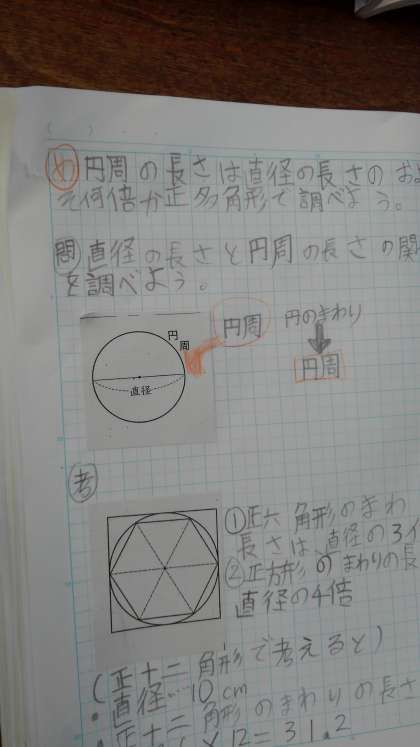 め 円周の長さは直径の長さのおよ
そ何倍か正多角形で調べよう。
問 直径の長さと円周の長さの関
を調べよう。
円周
直径
円周
円のまわり
円周
考
①正六角形のまわ
長さは、直径の3
②正方形のまわりの長
直径の4倍
(正十二角形で考えると)
・直径…10cm
・正十二角形のまわりの長さ
×12=31.2